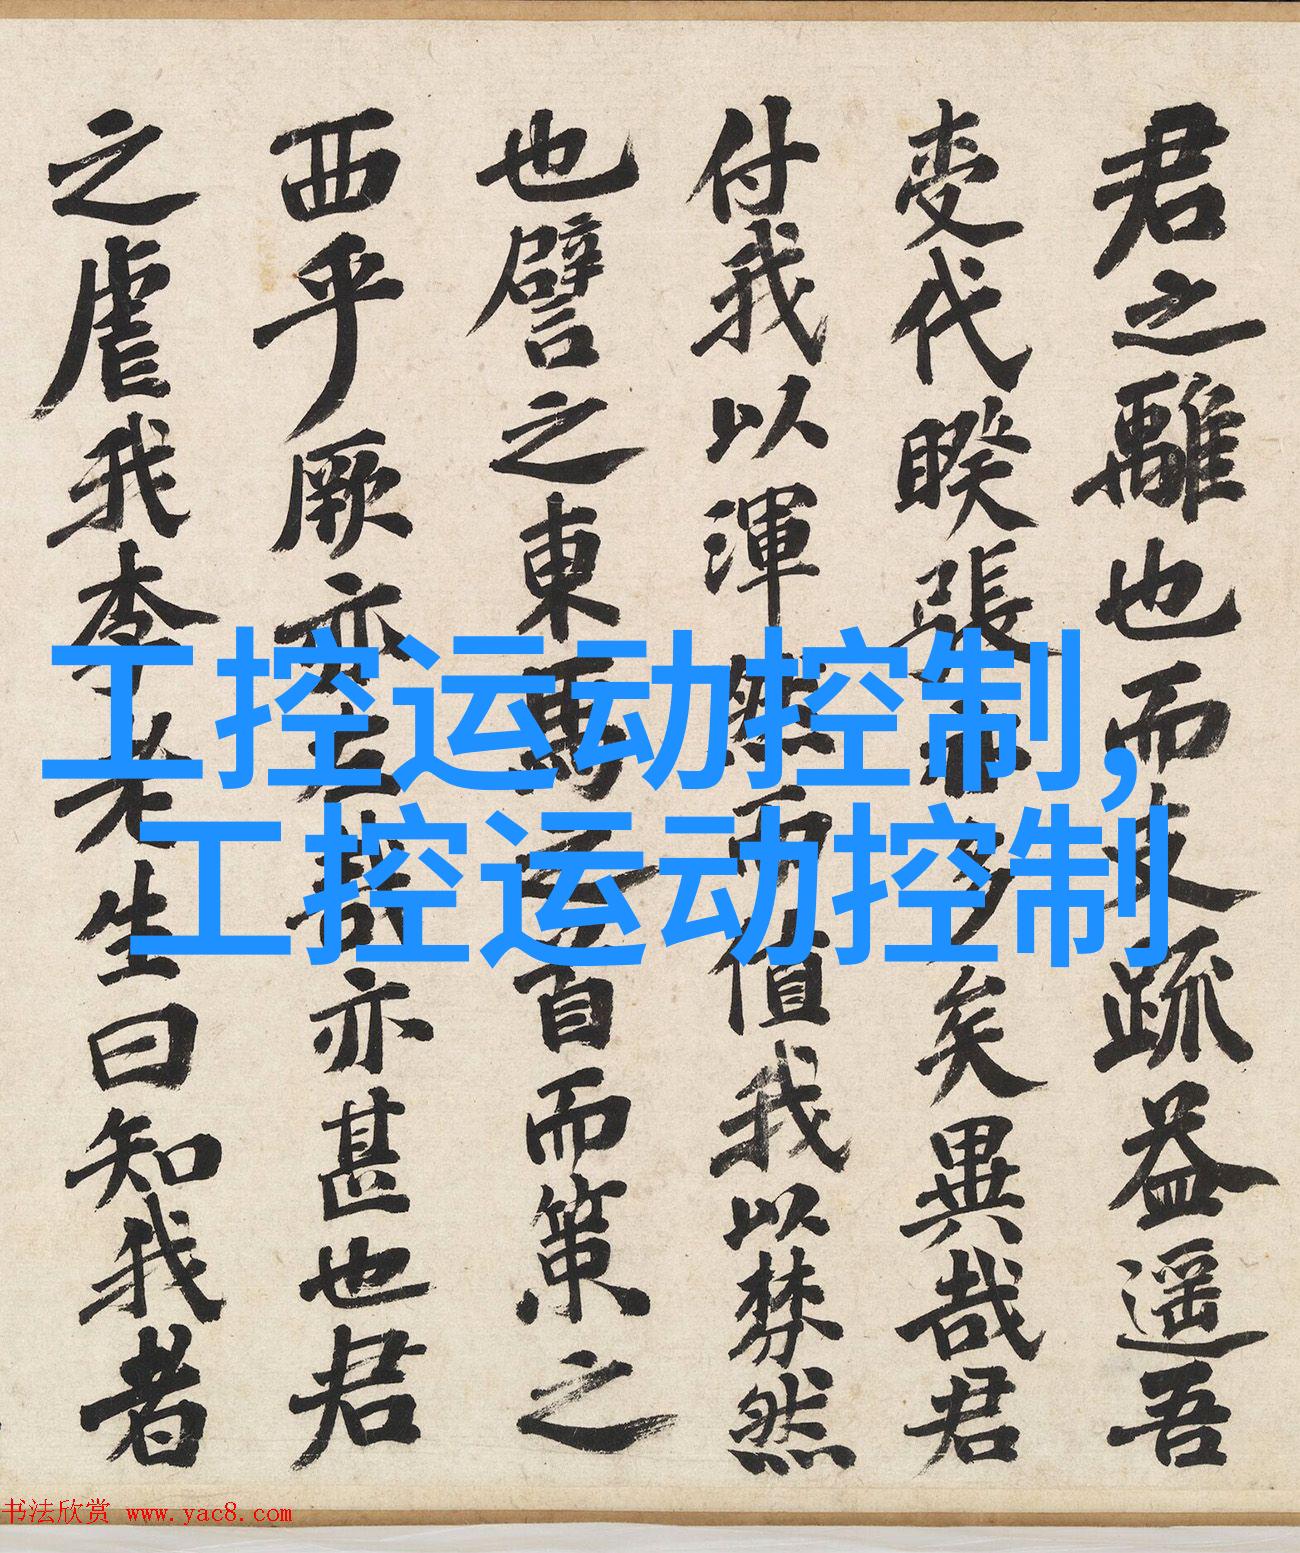 君之離也而支疏益遥吾
变代睽張亦多矣異哉君
付我以渾然而值我以棼然
也譬之東馬之首而策之
西乎厥亦左哉亦甚也君
之虐我李老生曰知我者
工控运动控制,
工控运动控制
书法欣赏 www.yac8.com